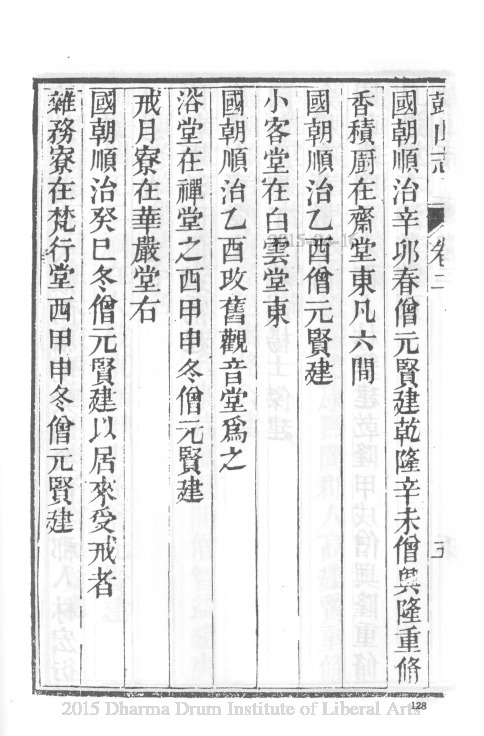 鼓山志 卷二 五
國朝順治辛卯春僧元賢建乾隆辛未僧興隆重脩
香積廚在齋堂東凡六間
國朝順治乙酉僧元賢建
小客堂在白雲堂東
國朝順治乙酉改舊觀音堂爲之
浴堂在禪堂之西甲申冬僧元賢建
戒月寮在華嚴堂右
國朝順治癸巳冬僧元賢建以居來受戒者
雜務寮在梵行堂西甲申冬僧元賢建
128
2015 Dharma Drum Institute of Liberal Arts